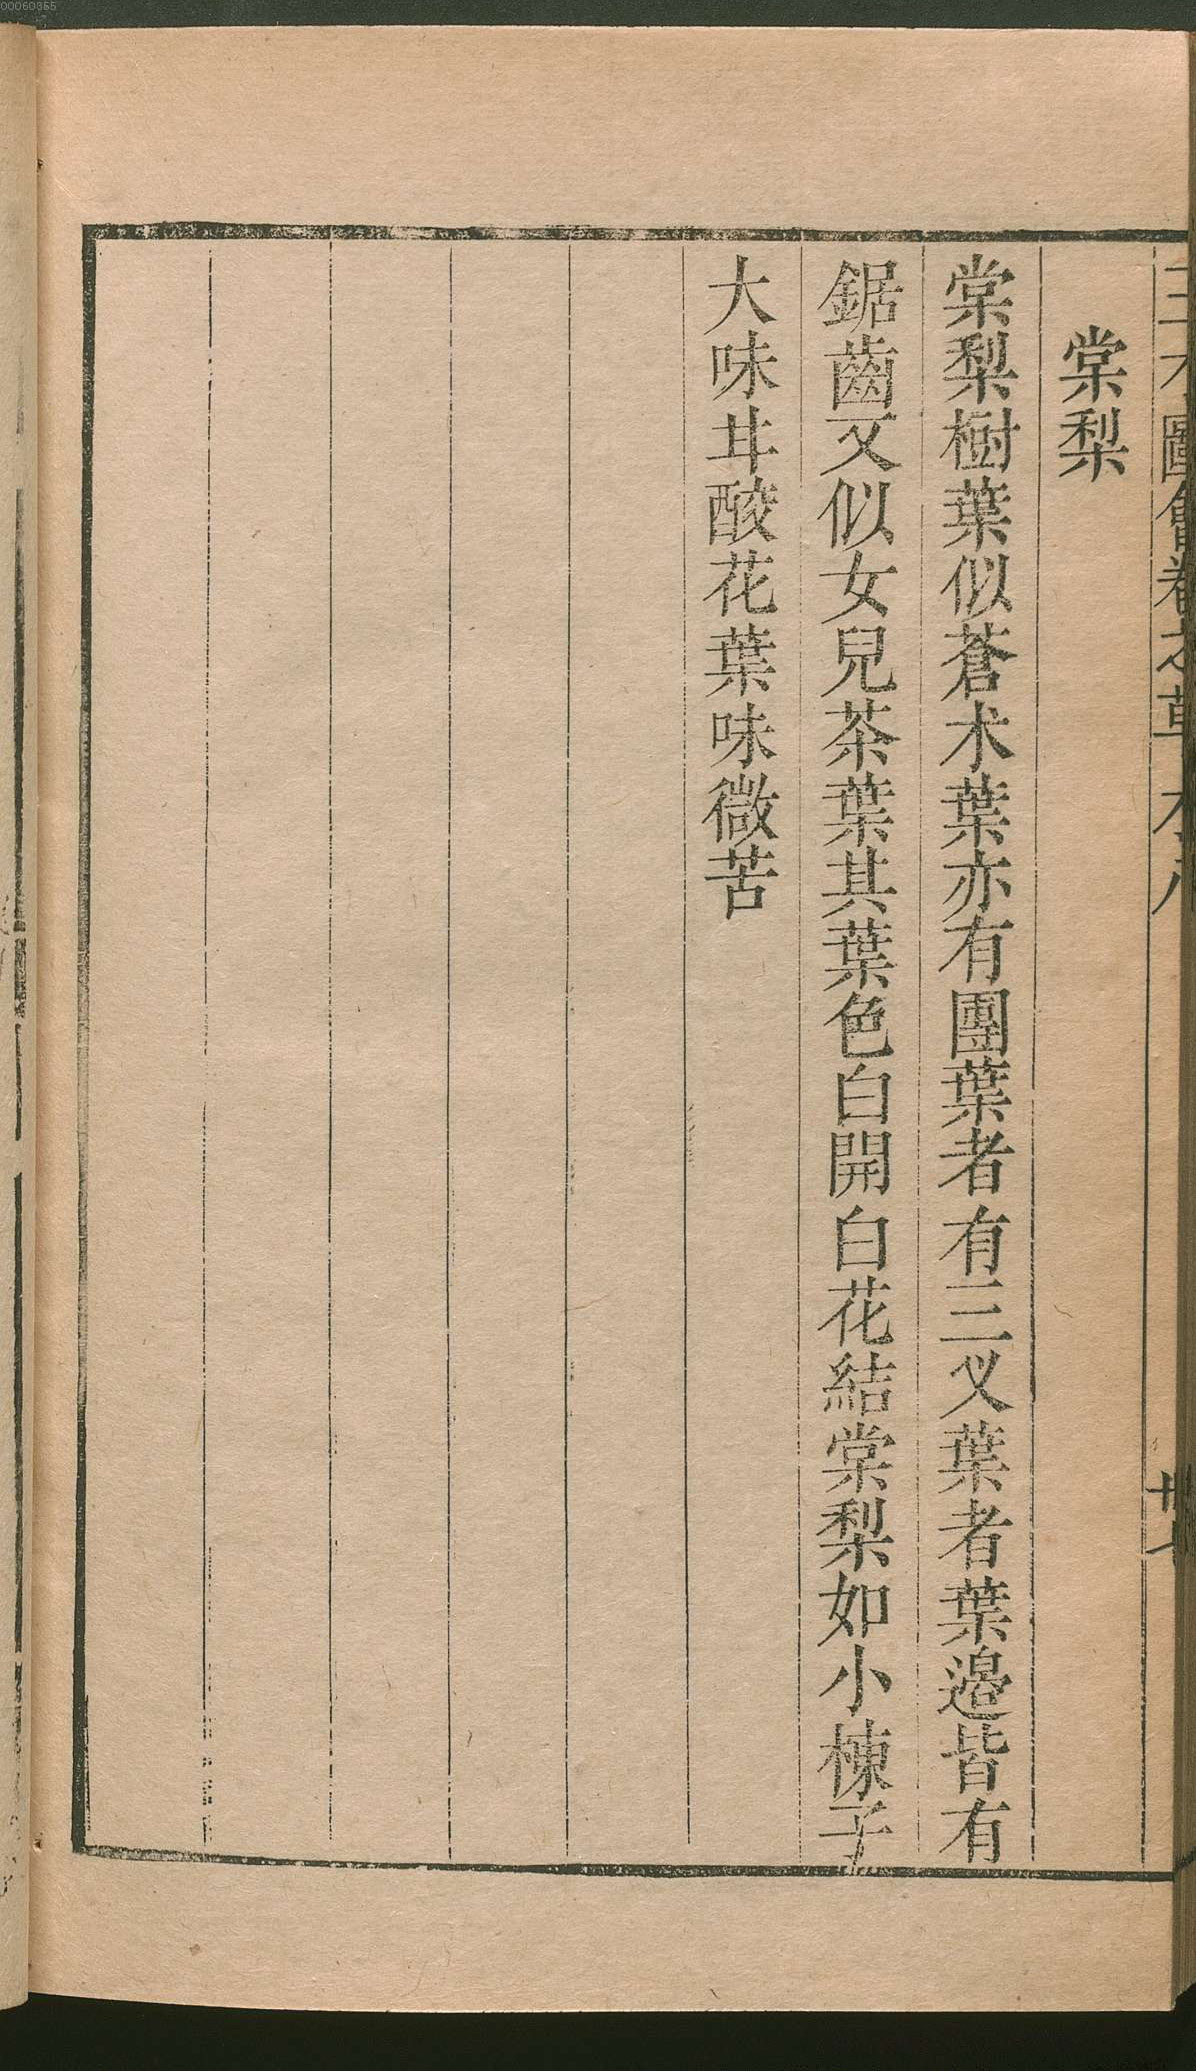 三才圖會卷之草木八
廿七
棠梨
棠梨樹葉似蒼术葉亦有團葉者有三叉葉者葉邉皆有
鋸齒又似女兒茶葉其葉色白開白花結棠梨如小楝子
大味甘酸花葉味微苦
00060355